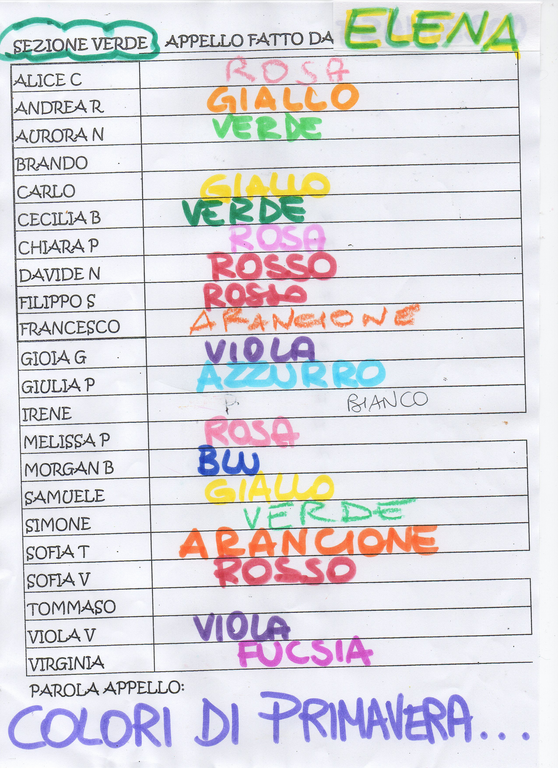 SEZIONE VERDE APPELLO FATTO DA ELENA
ALICE C ROSA
ANDREA R GIALLO
AURORA N VERDE
BRANDO
CARLO GIALLO
CECILIA B VERDE
CHIARA P ROSA
DAVIDE N ROSSO
FILIPPO S ROSSO
FRANCESCO ARANCIONE
GIOIA G VIOLA
GIULIA P AZZURRO
IRENE BIANCO
MELISSA P ROSA
MORGAN B BLU
SAMUELE GIALLO
SIMONE VERDE
SOFIA T ARANCIONE
SOFIA V ROSSO
TOMMASO
VIOLA V VIOLA
VIRGINIA FUCSIA
PAROLA APPELLO:
COLORI DI PRIMAVERA...